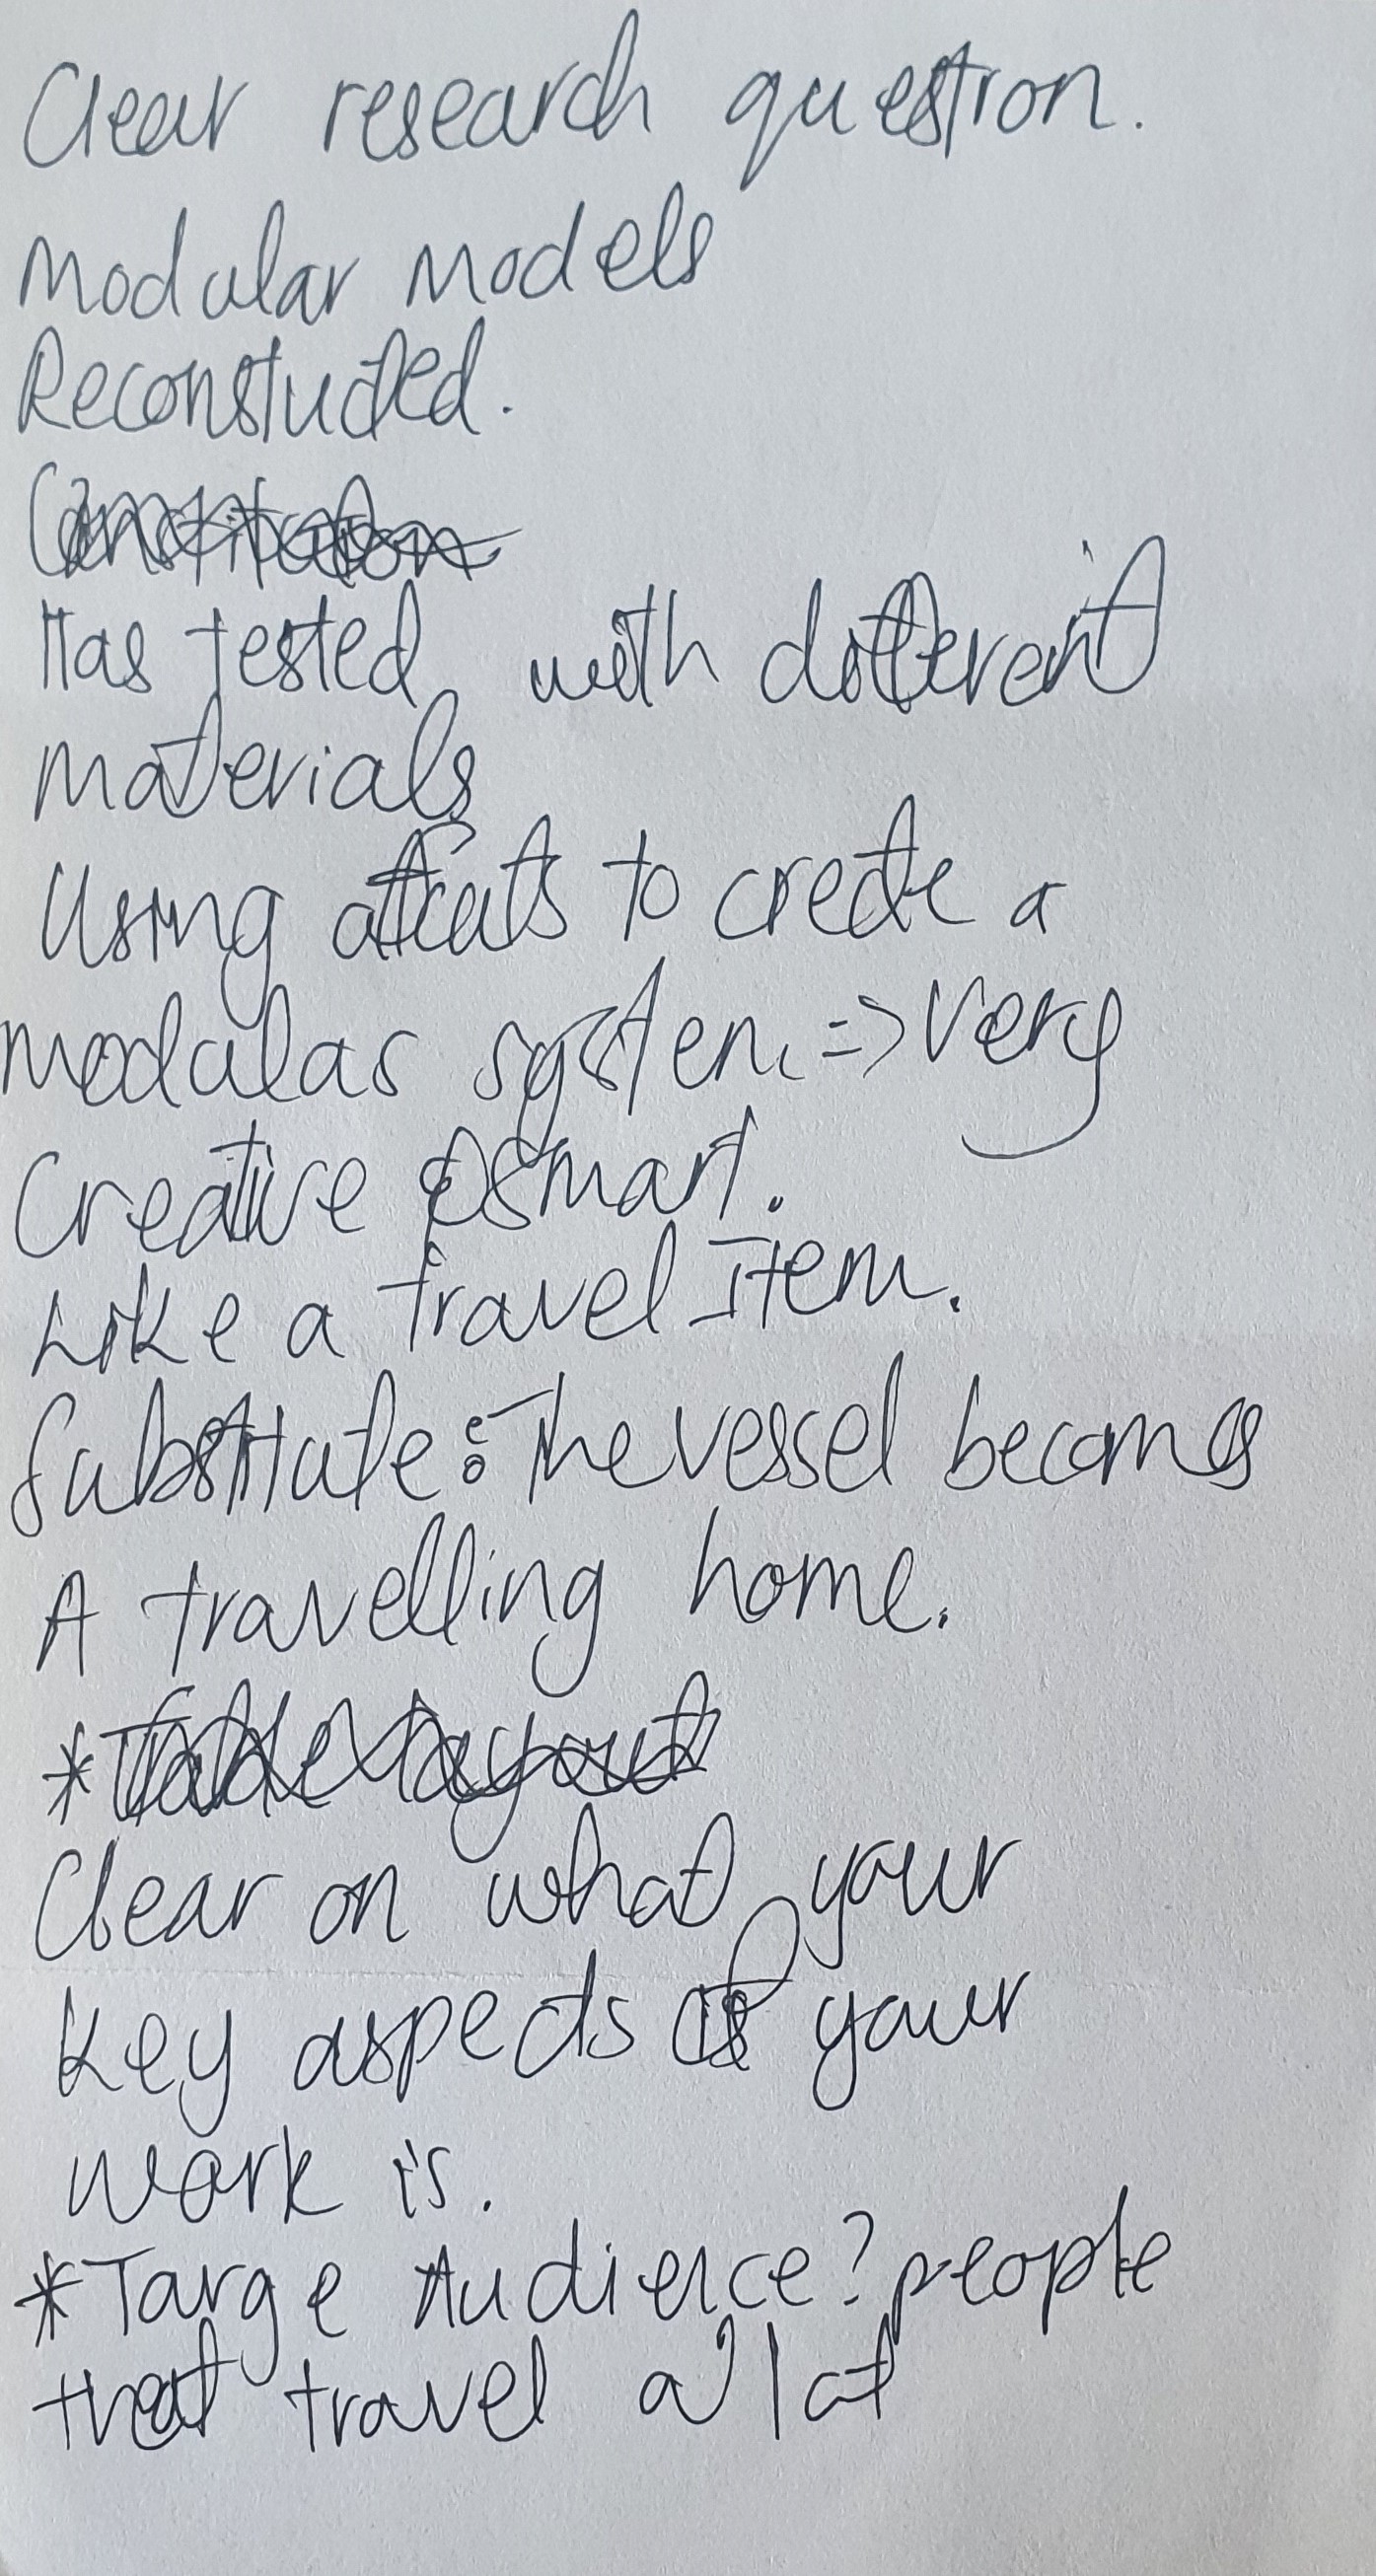 Clear research question.
Modular Models
Reconstucted.
Has tested with different
materials
Using offcuts to create a
modular system => very
Creative & smart.
Like a travel Item.
Substitute: The vessel becomes
A travelling home.
*Table layout
Clear on what your
Key aspects of your
work is.
*Targe Audience? people
that travel a lot